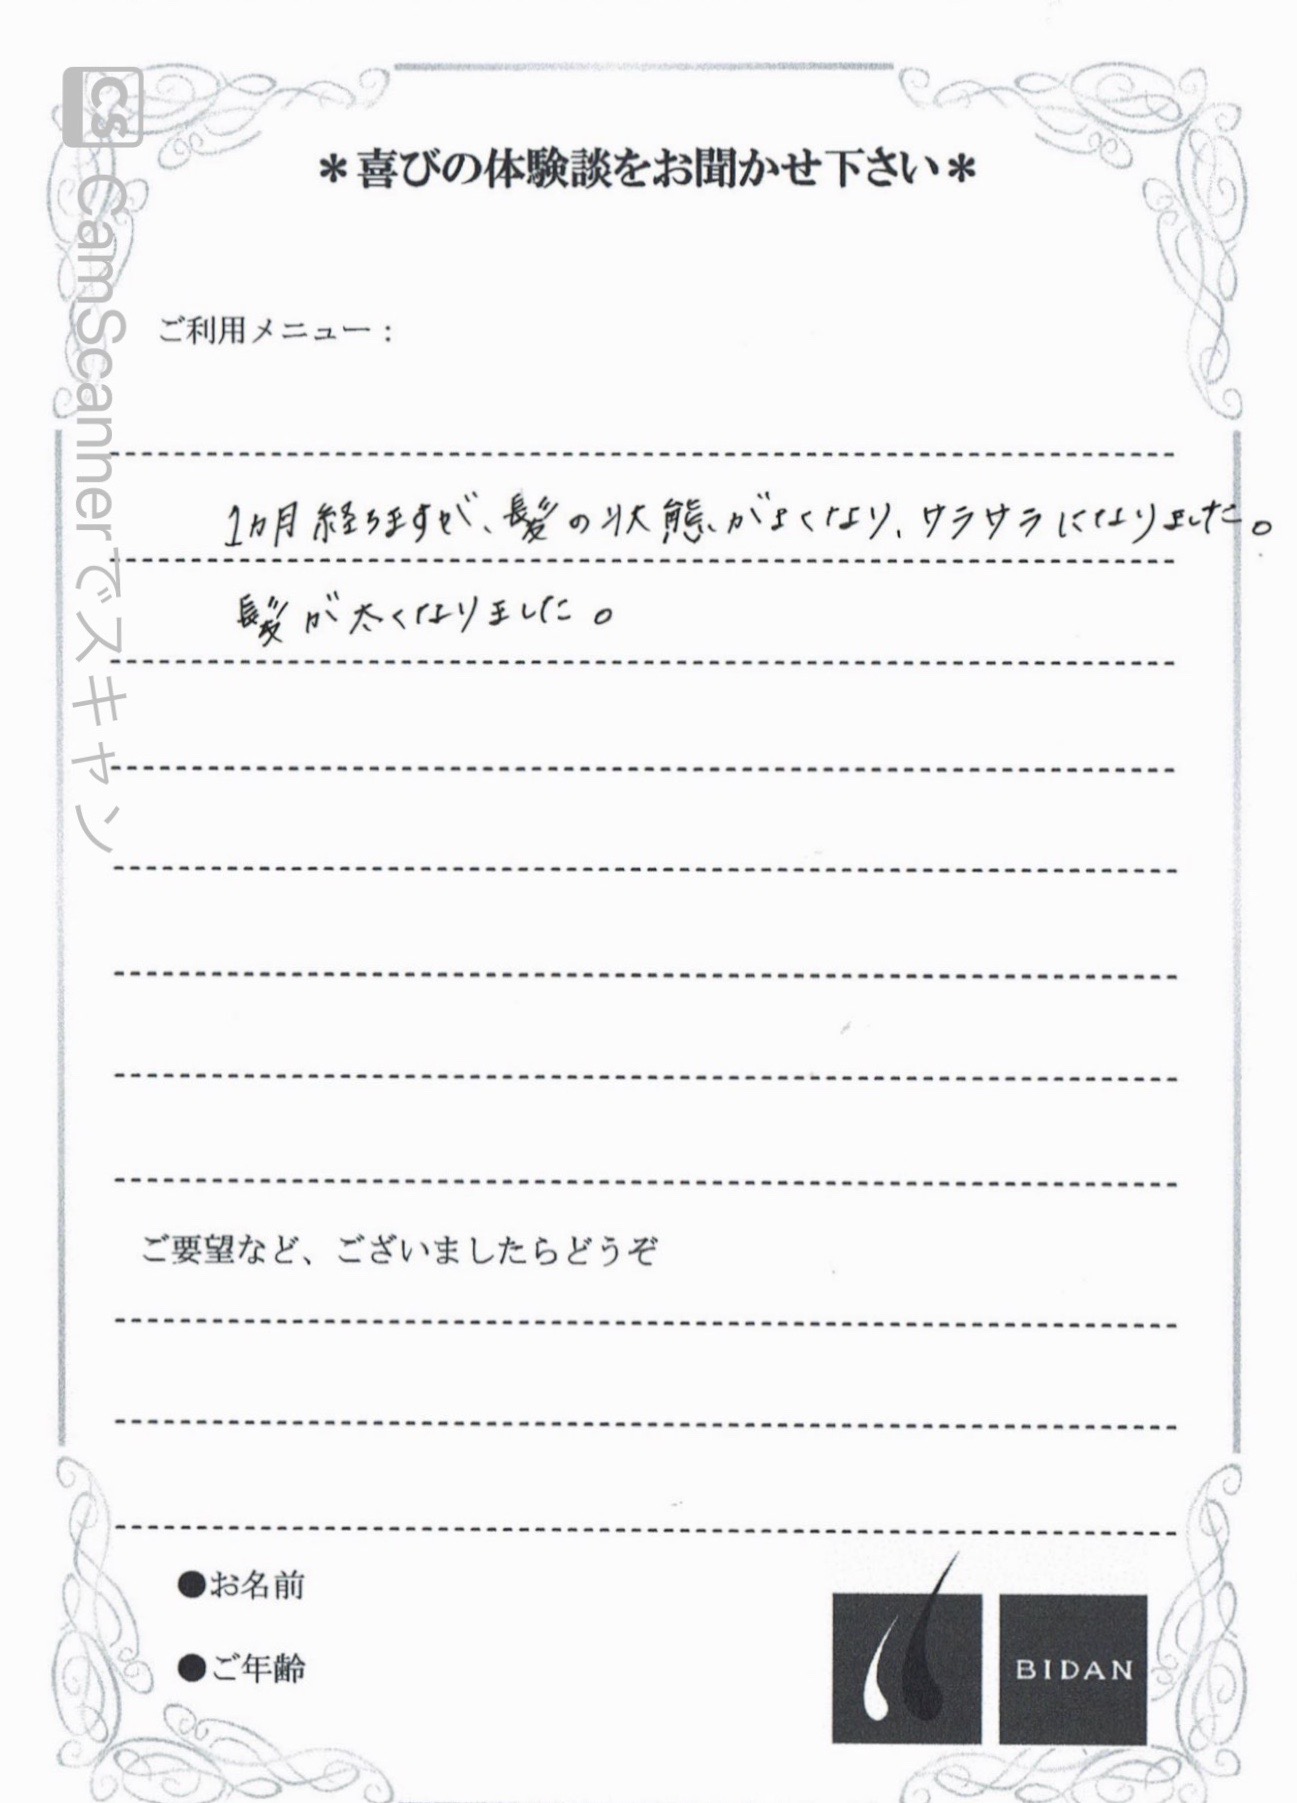 CS CamScannerでスキャン
＊喜びの体験談をお聞かせ下さい＊
ご利用メニュー：
1カ月経ちますが、髪の状態がよくなり、サラサラになりました。
髪が太くなりました。
ご要望など、ございましたらどうぞ
●お名前
●ご年齢
BIDAN